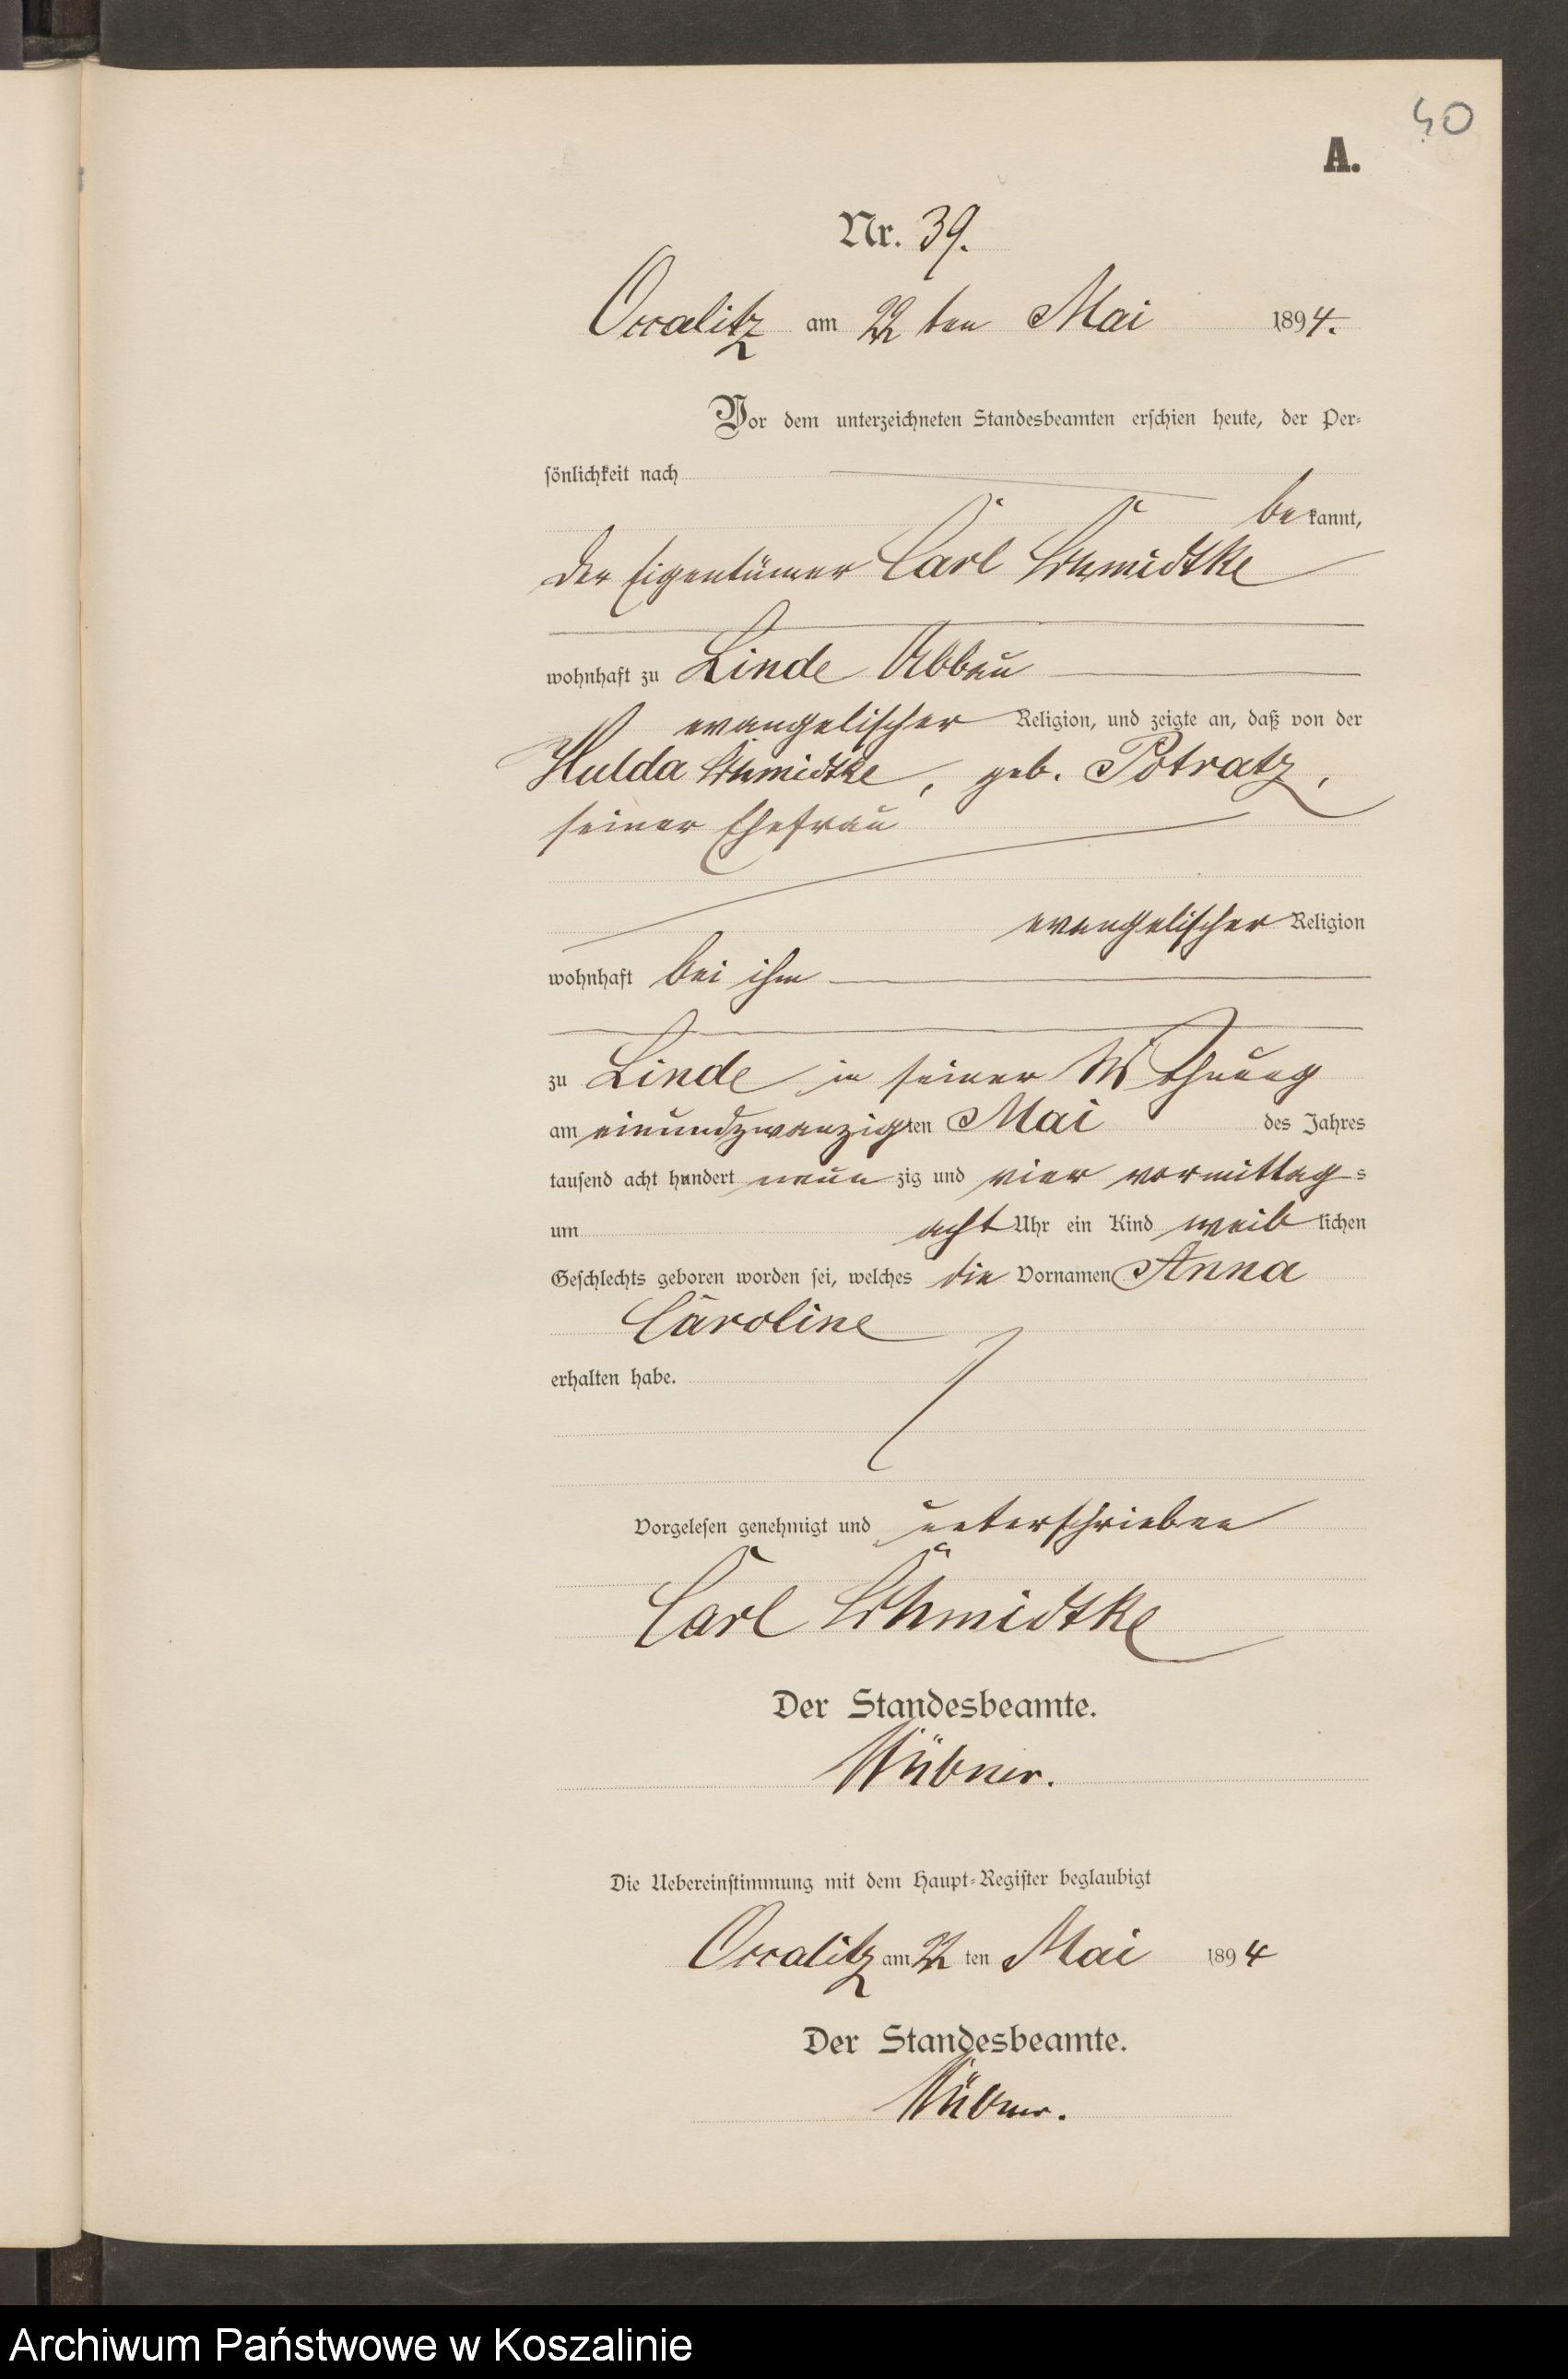 40
A.
Nr. 39.
Occalitz am 22 ten Mai 1894.
Vor dem unterzeichneten Standesbeamten erschien heute, der Per-
sönlichkeit nach
bekannt,
der Eigentümer Carl Schmidtke
wohnhaft zu Linde Abbau
evangelischer Religion, und zeigte an, daß von der
Hulda Schmidtke, geb. Potratz,
seiner Ehefrau
evangelischer Religion
wohnhaft bei ihm
zu Linde in seiner Wohnung
am einundzwanzigten Mai des Jahres
tausend acht hundert neunzig und vier vormittags
um acht Uhr ein Kind weiblichen
Geschlechts geboren worden sei, welches die Vornamen Anna
Caroline
erhalten habe.
Vorgelesen genehmigt und unterschrieben
Carl Schmidtke
Der Standesbeamte.
Die Uebereinstimmung mit dem Haupt-Register beglaubigt
Occalitz am 22 ten Mai 1894
Der Standesbeamte.
Archiwum Państwowe w Koszalinie